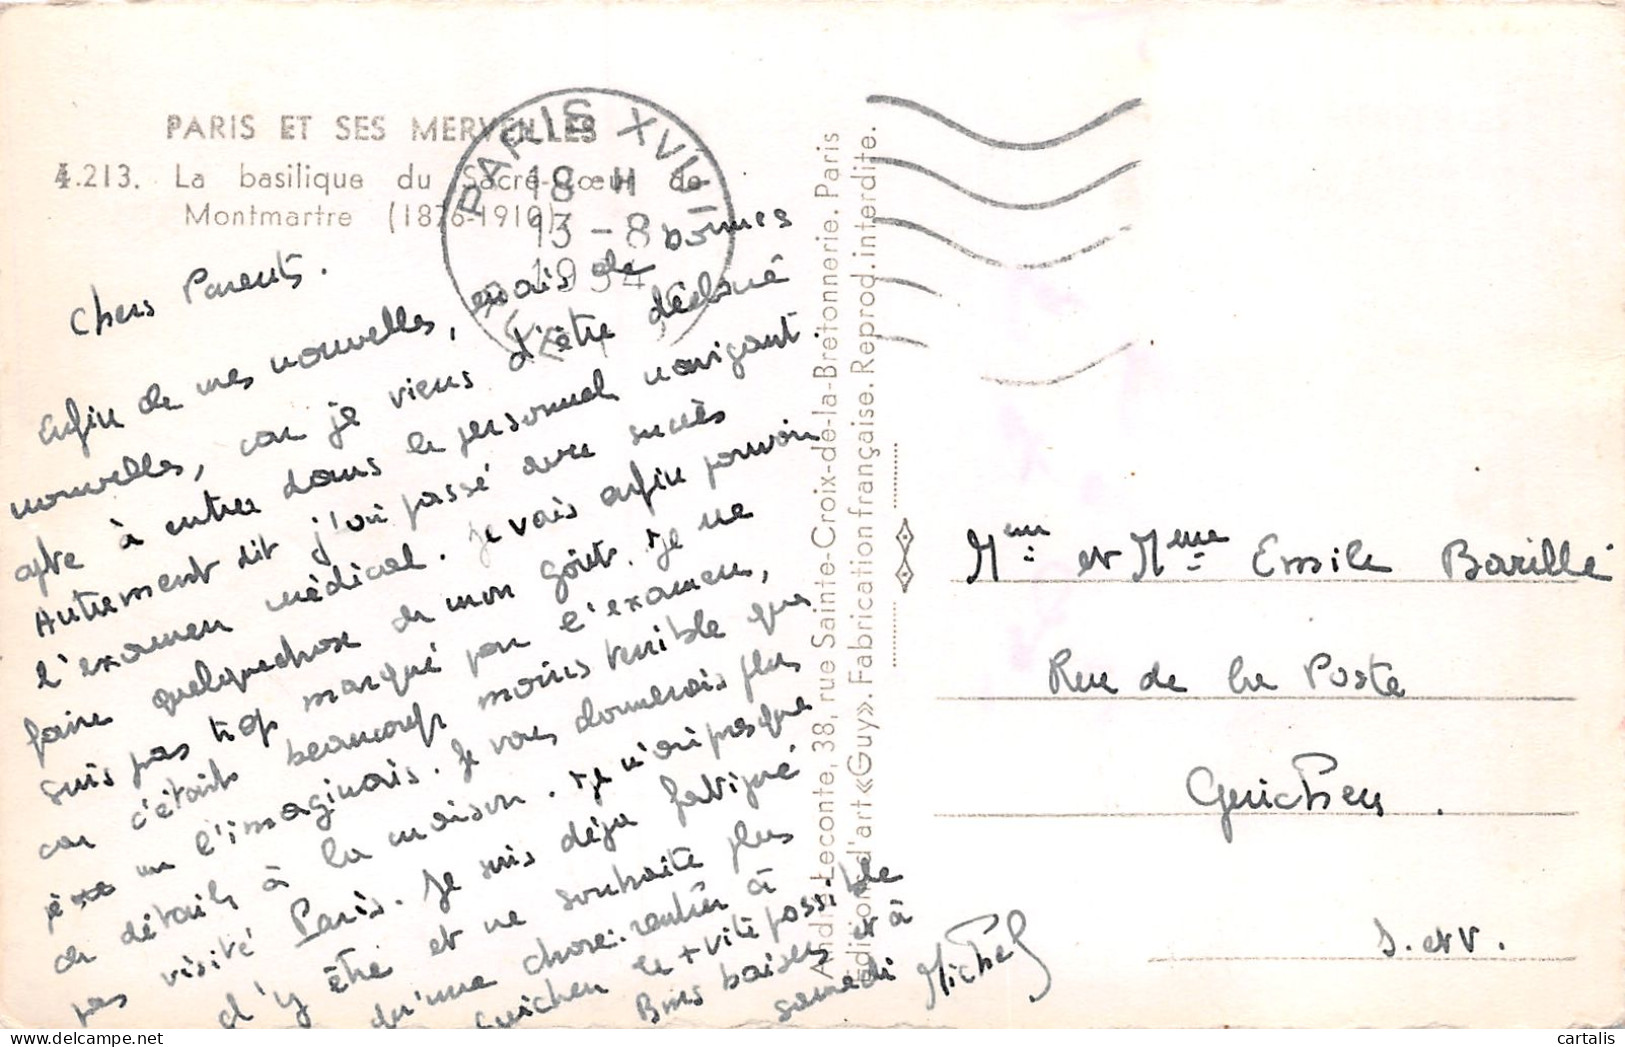 PARIS ET SES MERVEILLES
4.213. La basilique du Sacré-Cœur de
Montmartre (1876-1910)
PARIS XVIII
18 H
13-8
1954
Chers Parents.
Enfin de mes nouvelles, mais de bonnes
nouvelles, car je viens d'être déclaré
apte à entrer dans le personnel navigant.
Autrement dit j'ai passé avec succès
l'examen médical. Je vais enfin pouvoir
faire quelquechose de mon goût. Je ne
suis pas trop marqué par l'examen,
car c'était beaucoup moins terrible que
je me l'imaginais. Je vous donnerais plus
de détails à la maison. Je n'ai presque
pas visité Paris. Je suis déja fatigué
d'y être et ne souhaite plus
qu'une chose: rentrer à
Guichen le + vite possible
Bons baisers et à
samedi Michel
André Leconte, 38, rue Sainte-Croix-de-la-Bretonnerie. Paris
Editions d'art «Guy». Fabrication française. Reprod. interdite.
Mr et Mme Emile Barillé
Rue de la Poste
Guichen.
I. et V.
© cartalis